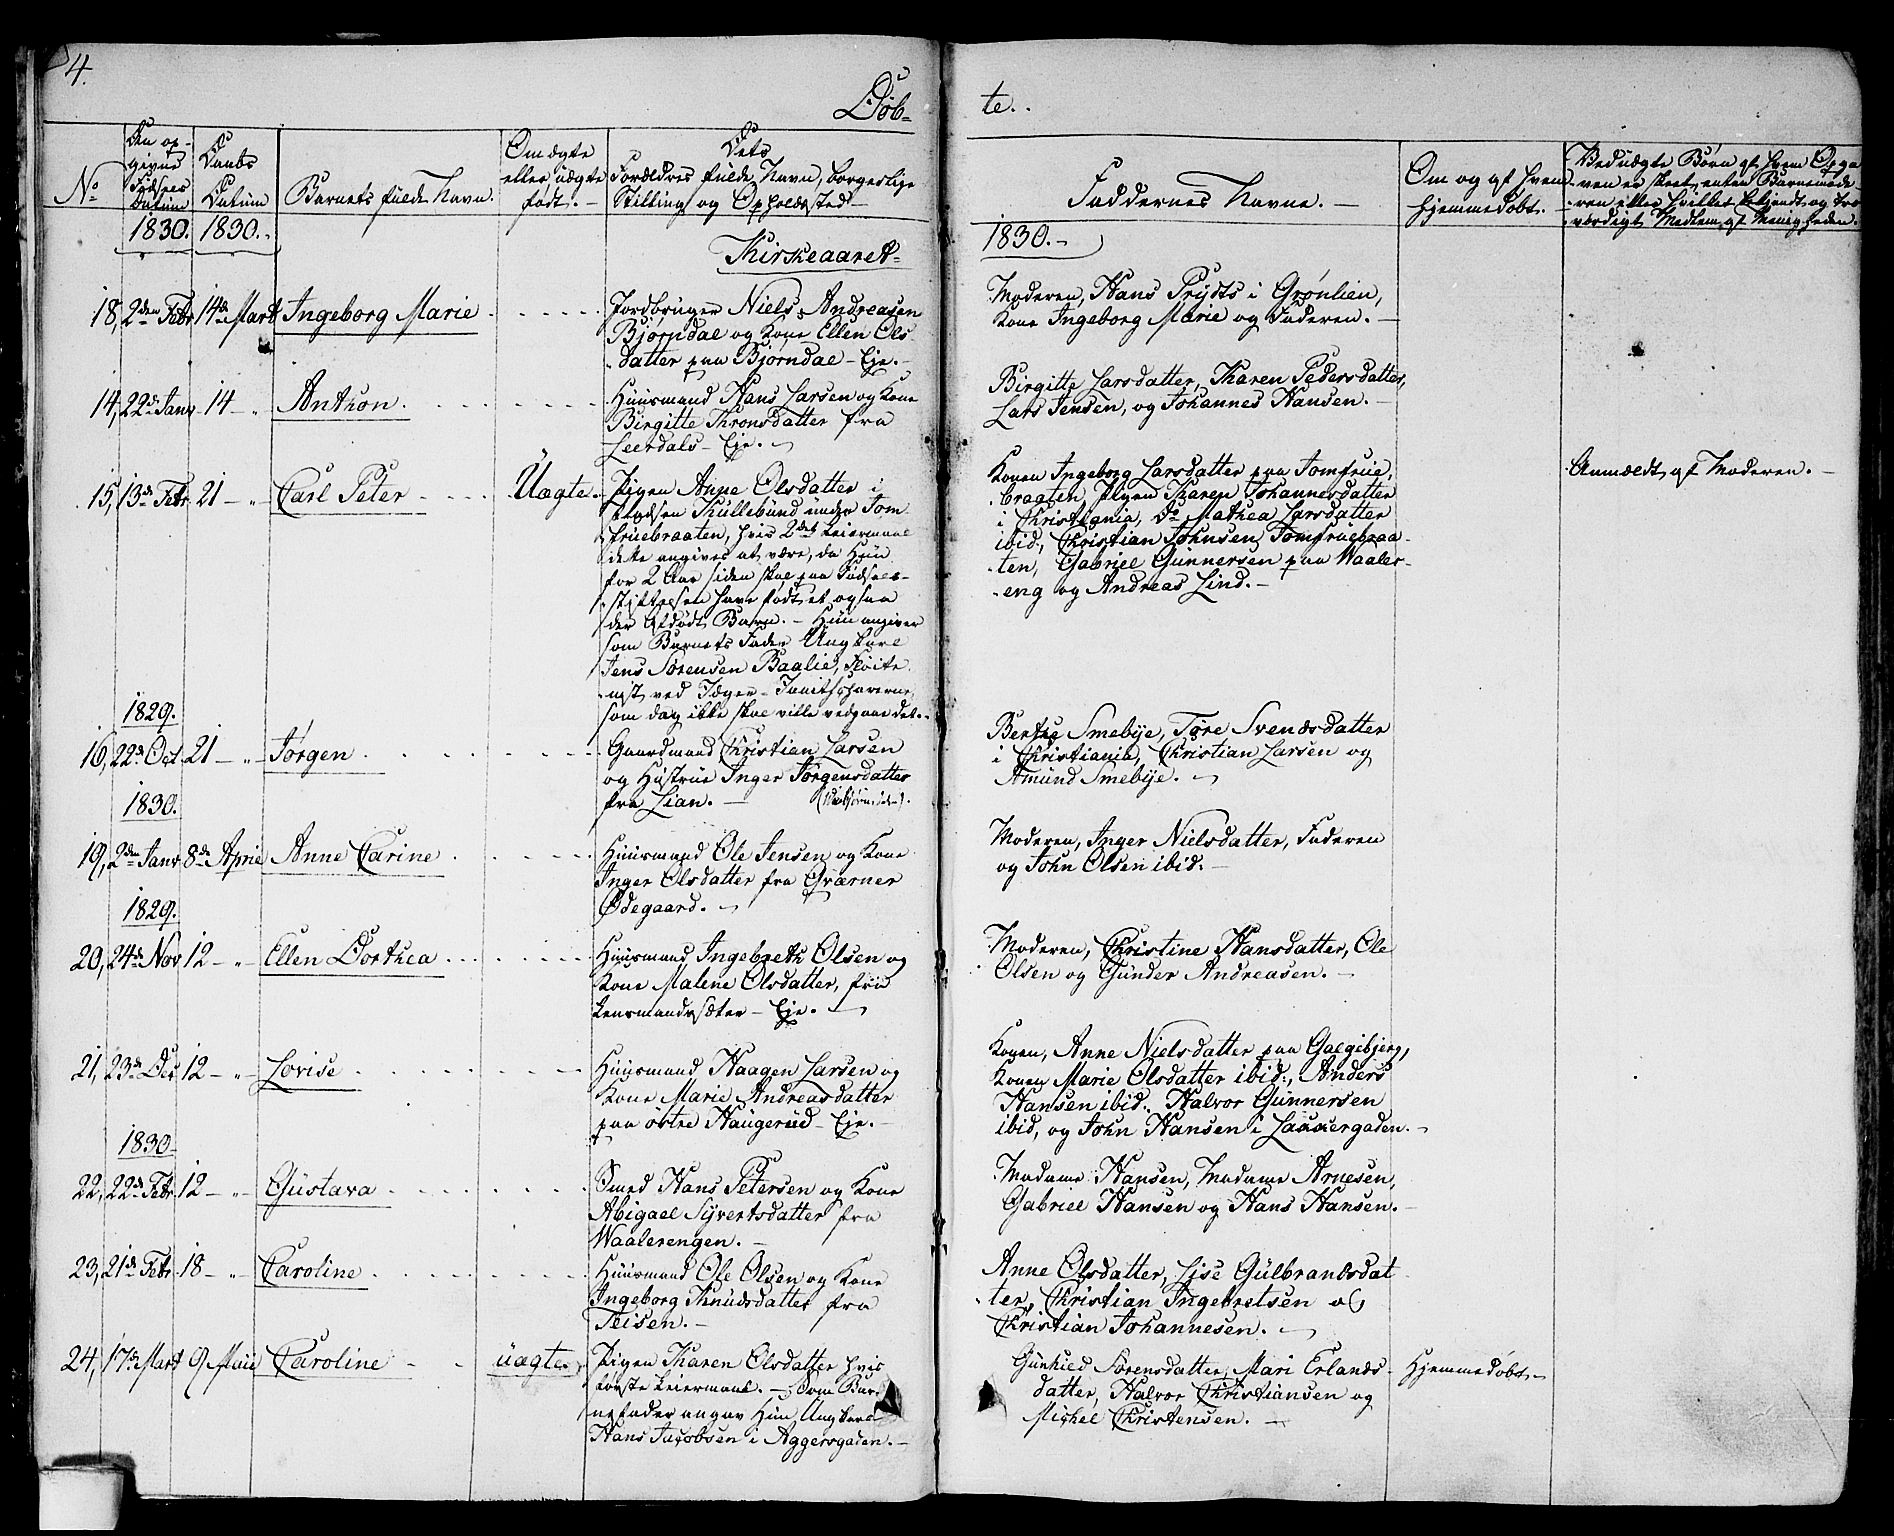 4.
Døb-
te.
No
Den op-
givne
Fødsels
Datum
Daabs
Datum
Barnets fulde Navn.
Om ægte
eller uægte
født.
Dets
Forældres fulde Navn, borgerlige
Stilling og Opholdssted
Faddernes Navne.
Om og af hvem
hjemmedøbt.
Ved uægte Børn af hvem Opga
ven er skeet, enten Barnemode
ren eller hvilket bekjendt og tro
værdigt Medlem af Menigheden.
1830. 1830.
Kirkeaaret
1830.
18, 2den Febr 14de Mart Ingeborg Marie
Jordbruger Niels Andreasen
Bjørndal og Kone Ellen Ols
datter paa Bjørndal Eje.
Moderen, Hans Prydts i Grønlien,
Kone Ingeborg Marie og Faderen.
14, 22de Janr 14 Anthon.
Huusmand Hans Larsen og Kone
Birgitte Thronsdatter fra
Leerdals Eje.
Birgitte Larsdatter, Karen Pedersdatter,
Lars Jensen, og Johannes Hansen.
15, 13de Febr 21 Carl Peter
Uægte.
Pigen Anne Olsdatter i
Pladsen Kullebund under Jom
fruebraaten, hvis 2det Leiermaal
dette angives at være, da Hun
for 2 Aar siden skal paa Fødsels-
stiftelsen have født et ogsaa
der afdødt Barn. Hun angiver
som Barnets Fader Ungkarl
Jens Sørensen Baalie, Fløite
nist ved Jæger-Janitsharerne,
som dog ikke skal ville vedgaae det.
Konen Ingeborg Larsdatter paa Jomfrue,
bragten, Pigen Karen Johannesdatter
i Christiania, Do Mathea Larsdatter
ibid., Christian Johnsen Jomfruebraa-
ten, Gabriel Gunnersen paa Waaler-
eng og Andreas Lind.
Anmældt af Moderen.
1829.
16, 22de Oct. 21 Jørgen
Gaardmand Christian Larsen
og Hustrue Inger Jørgensdatter
fra Lian.
Berthe Smebye, Tøre Svendsdatter
i Christiania, Christian Larsen og
Amund Smebye.
1830.
19, 2den Janr 8de April Anne Carine
Huusmand Ole Jensen og Kone
Inger Olsdatter fra Qværner
Ødegaard.
Moderen, Inger Nielsdatter, Faderen
og John Olsen ibid.
1829.
20, 24de Nov 12 Ellen Dorthea
Huusmand Ingebreth Olsen og
Kone Malene Olsdatter, fra
Lensmandssæter Eje.
Moderen, Christine Hansdatter, Ole
Olsen og Gunder Andreasen.
21, 23de Des 12 Lovise
Huusmand Haagen Larsen og
Kone Marie Andreasdatter
paa østre Haugerud Eje.
Konen, Anne Nielsdatter paa Galgebjerg,
Konen Marie Olsdatter ibid., Anders
Hansen ibid. Halvor Gunnersen
ibid, og John Hansen i Lakkergaden.
1830
22, 22de Febr 12 Gustava
Smed Hans Petersen og Kone
Abigael Syvertsdatter fra
Waalerengen.
Madame Hansen, Madame Arnesen,
Gabriel Hansen og Hans Hansen.
23, 21de Febr. 18 Caroline
Huusmand Ole Olsen og Kone
Ingeborg Knudsdatter fra
Teisen.
Anne Olsdatter, Lise Gulbrandsdat
ter, Christian Ingebretsen og
Christian Johannesen.
24, 17de Mart 9 Maii Caroline
uægte.
Pigen Karen Olsdatter hvis
første Leiermaal. Som Bar
nefader angav Hun Ungkarl
Hans Jacobsen i Aggersgaden.
Gunhild Sørensdatter, Mari Erlands-
datter, Halvor Christiansen og
Michel Christensen.
Hjemmedøbt